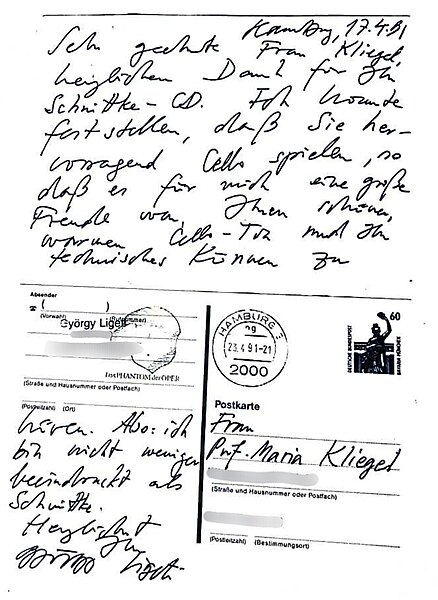 Hamburg, 17.4.91
Sehr geehrte Frau Kliegel,
herzlichen Dank für Ihre
Schnittke-CD. Ich konnte
feststellen, daß Sie her-
vorragend Cello spielen, so
daß es für mich eine große
Freude war, Ihren schönen,
warmen Cello-Ton und Ihr
technisches Können zu
Absender
(Vorwahl) (Rufnummer)
György Ligeti
Das PHANTOM der OPER
(Straße und Hausnummer oder Postfach)
(Postleitzahl) (Ort)
hören. Also: ich
bin nicht weniger
beeindruckt als
Schnittke.
Herzlichst
Ihr
György Ligeti
HAMBURG
23.4.91-21
2000
60
DEUTSCHE BUNDESPOST
BAVARIA MÜNCHEN
Postkarte
Frau
Prof. Maria Kliegel
(Straße und Hausnummer oder Postfach)
(Postleitzahl) (Bestimmungsort)